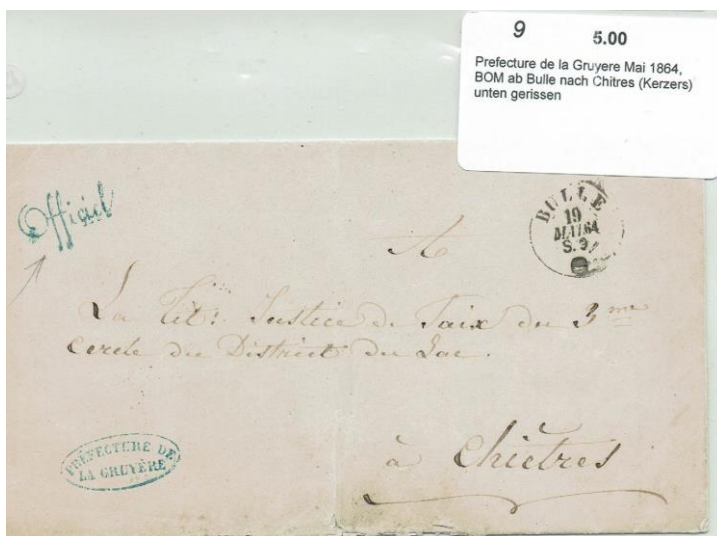 9 5.00
Prefecture de la Gruyere Mai 1864,
BOM ab Bulle nach Chitres (Kerzers)
unten gerissen
Officiel
BULLE
19
MAI 64
S. 9
A
La Tit: Justice de Paix du 3me
Cercle du District du Lac.
PRÉFECTURE DE
LA GRUYÈRE
à Chiètres